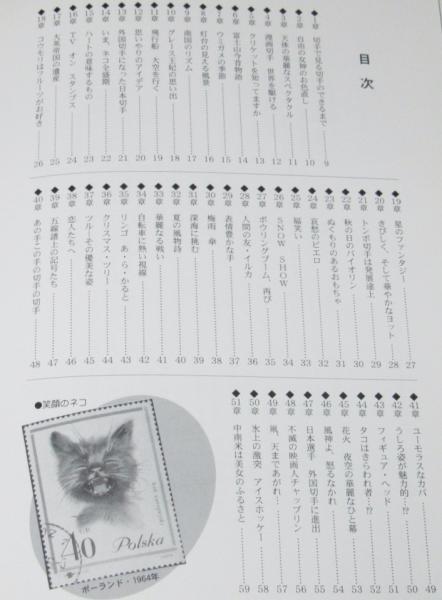 目次
◆1章 切手で見る切手のできるまで……9
◆2章 自由の女神のお色直し……10
◆3章 天体の華麗なスペクタクル……11
◆4章 漫画切手 世界を駆ける……12
◆5章 クリケットを知ってますか……13
◆6章 富士山今昔物語……14
◆7章 ウミガメの季節……15
◆8章 灯台の見える風景……16
◆9章 南国のリズム……17
◆10章 グレース王妃の思い出……18
◆11章 飛行船 大空を行く……19
◆12章 思いやりのアイデア……20
◆13章 外国切手になった日本切手……21
◆14章 いま、ネコ全盛期……22
◆15章 ハートの意味するもの……23
◆16章 TV オン スタンプス……24
◆17章 大英帝国の遺産……25
◆18章 コウモリはフルーツがお好き……26
◆19章 星のファンタジー……27
◆20章 きびしく、そして華やかなヨット……28
◆21章 トンボ切手は発展途上……29
◆22章 秋の日のバイオリン……30
◆23章 ぬくもりのあるおもちゃ……31
◆24章 哀愁のピエロ……32
◆25章 福笑い……33
◆26章 SNOW SHOW……34
◆27章 ボウリングブーム、再び……35
◆28章 人間の友・イルカ……36
◆29章 表情豊かな手……37
◆30章 梅雨 傘……38
◆31章 深海に挑む……39
◆32章 夏の風物詩……40
◆33章 華麗なる戦い……41
◆34章 自転車に熱い視線……42
◆35章 リンゴ あ・ら・かると……43
◆36章 クリスマス・ツリー……44
◆37章 ツル・その優美な姿……45
◆38章 恋人たちへ……46
◆39章 五線譜上の記号たち……47
◆40章 あの手この手の切手の切手……48
◆41章 ユーモラスなカバ……49
◆42章 うしろ姿が魅力的…!?……50
◆43章 フィギュア・ヘッド……51
◆44章 タコはきらわれ者…!?……52
◆45章 花火 夜空の華麗なひと幕……53
◆46章 風神よ、怒るなかれ……54
◆47章 日本選手 外国切手に進出……55
◆48章 不滅の映画人チャップリン……56
◆49章 凧、天まであがれ……57
◆50章 氷上の激突 アイスホッケー……58
◆51章 中南米は美女のふるさと……59
●笑顔のネコ
40
Polska
ポーランド・1964年